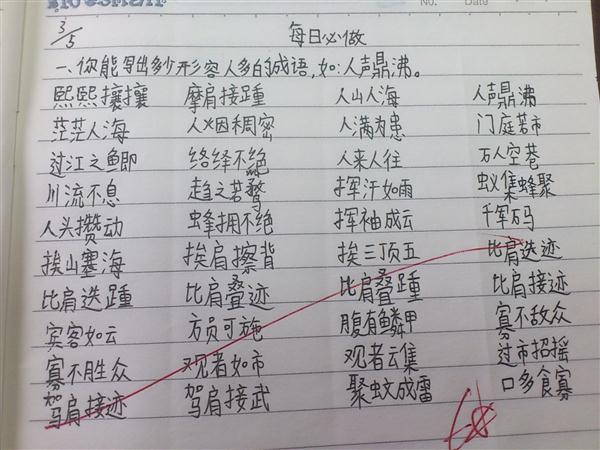 No. Date
3/5 每日必做
一、你能写出多少形容人多的成语,如:人声鼎沸。
熙熙攘攘 摩肩接踵 人山人海 人声鼎沸
茫茫人海 人烟稠密 人满为患 门庭若市
过江之鲫 络绎不绝 人来人往 万人空巷
川流不息 趋之若鹜 挥汗如雨 蚁集蜂聚
人头攒动 蜂拥不绝 挥袖成云 千军万码
挨山塞海 挨肩擦背 挨三顶五 比肩迭迹
比肩迭踵 比肩叠迹 比肩叠踵 比肩接迹
宾客如云 方员可施 腹有鳞甲 寡不敌众
寡不胜众 观者如市 观者云集 过市招摇
驾肩接迹 驾肩接武 聚蚊成雷 口多食寡